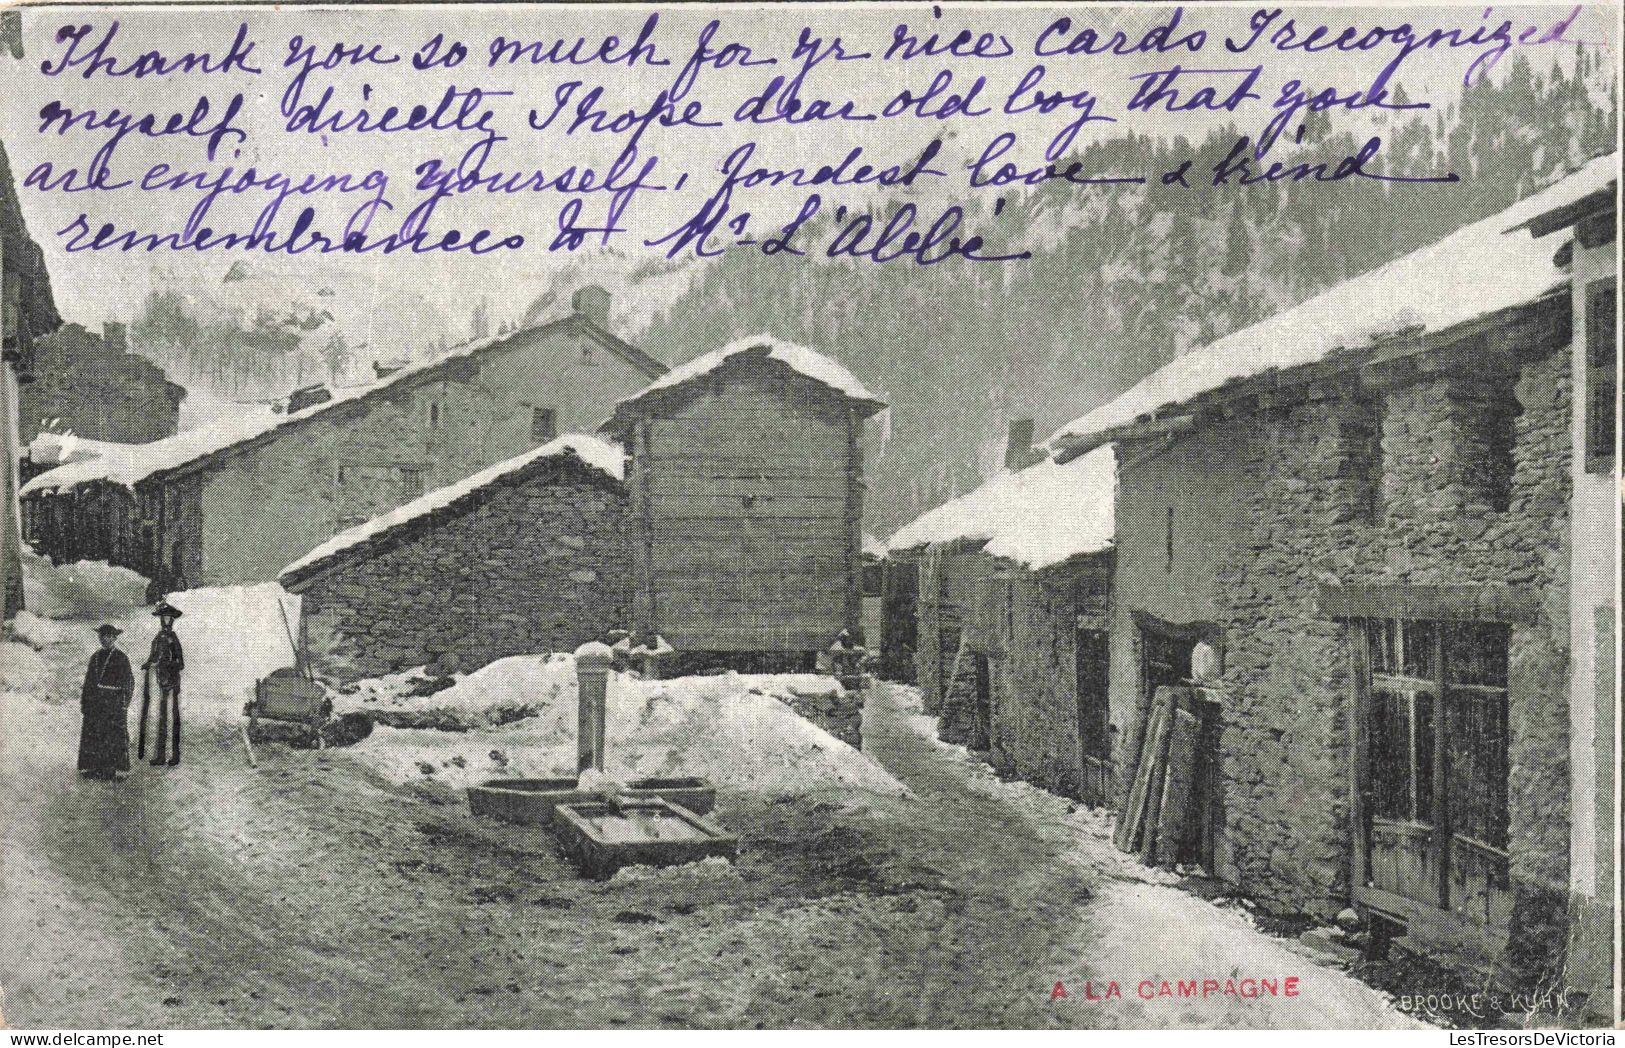 Thank you so much for yr nice cards I recognized
myself directly I hope dear old boy that you
are enjoying yourself, fondest love & kind
remembrances to Mr L'Abbé
A LA CAMPAGNE
BROOKE & KUHN
LesTresorsDeVictoria